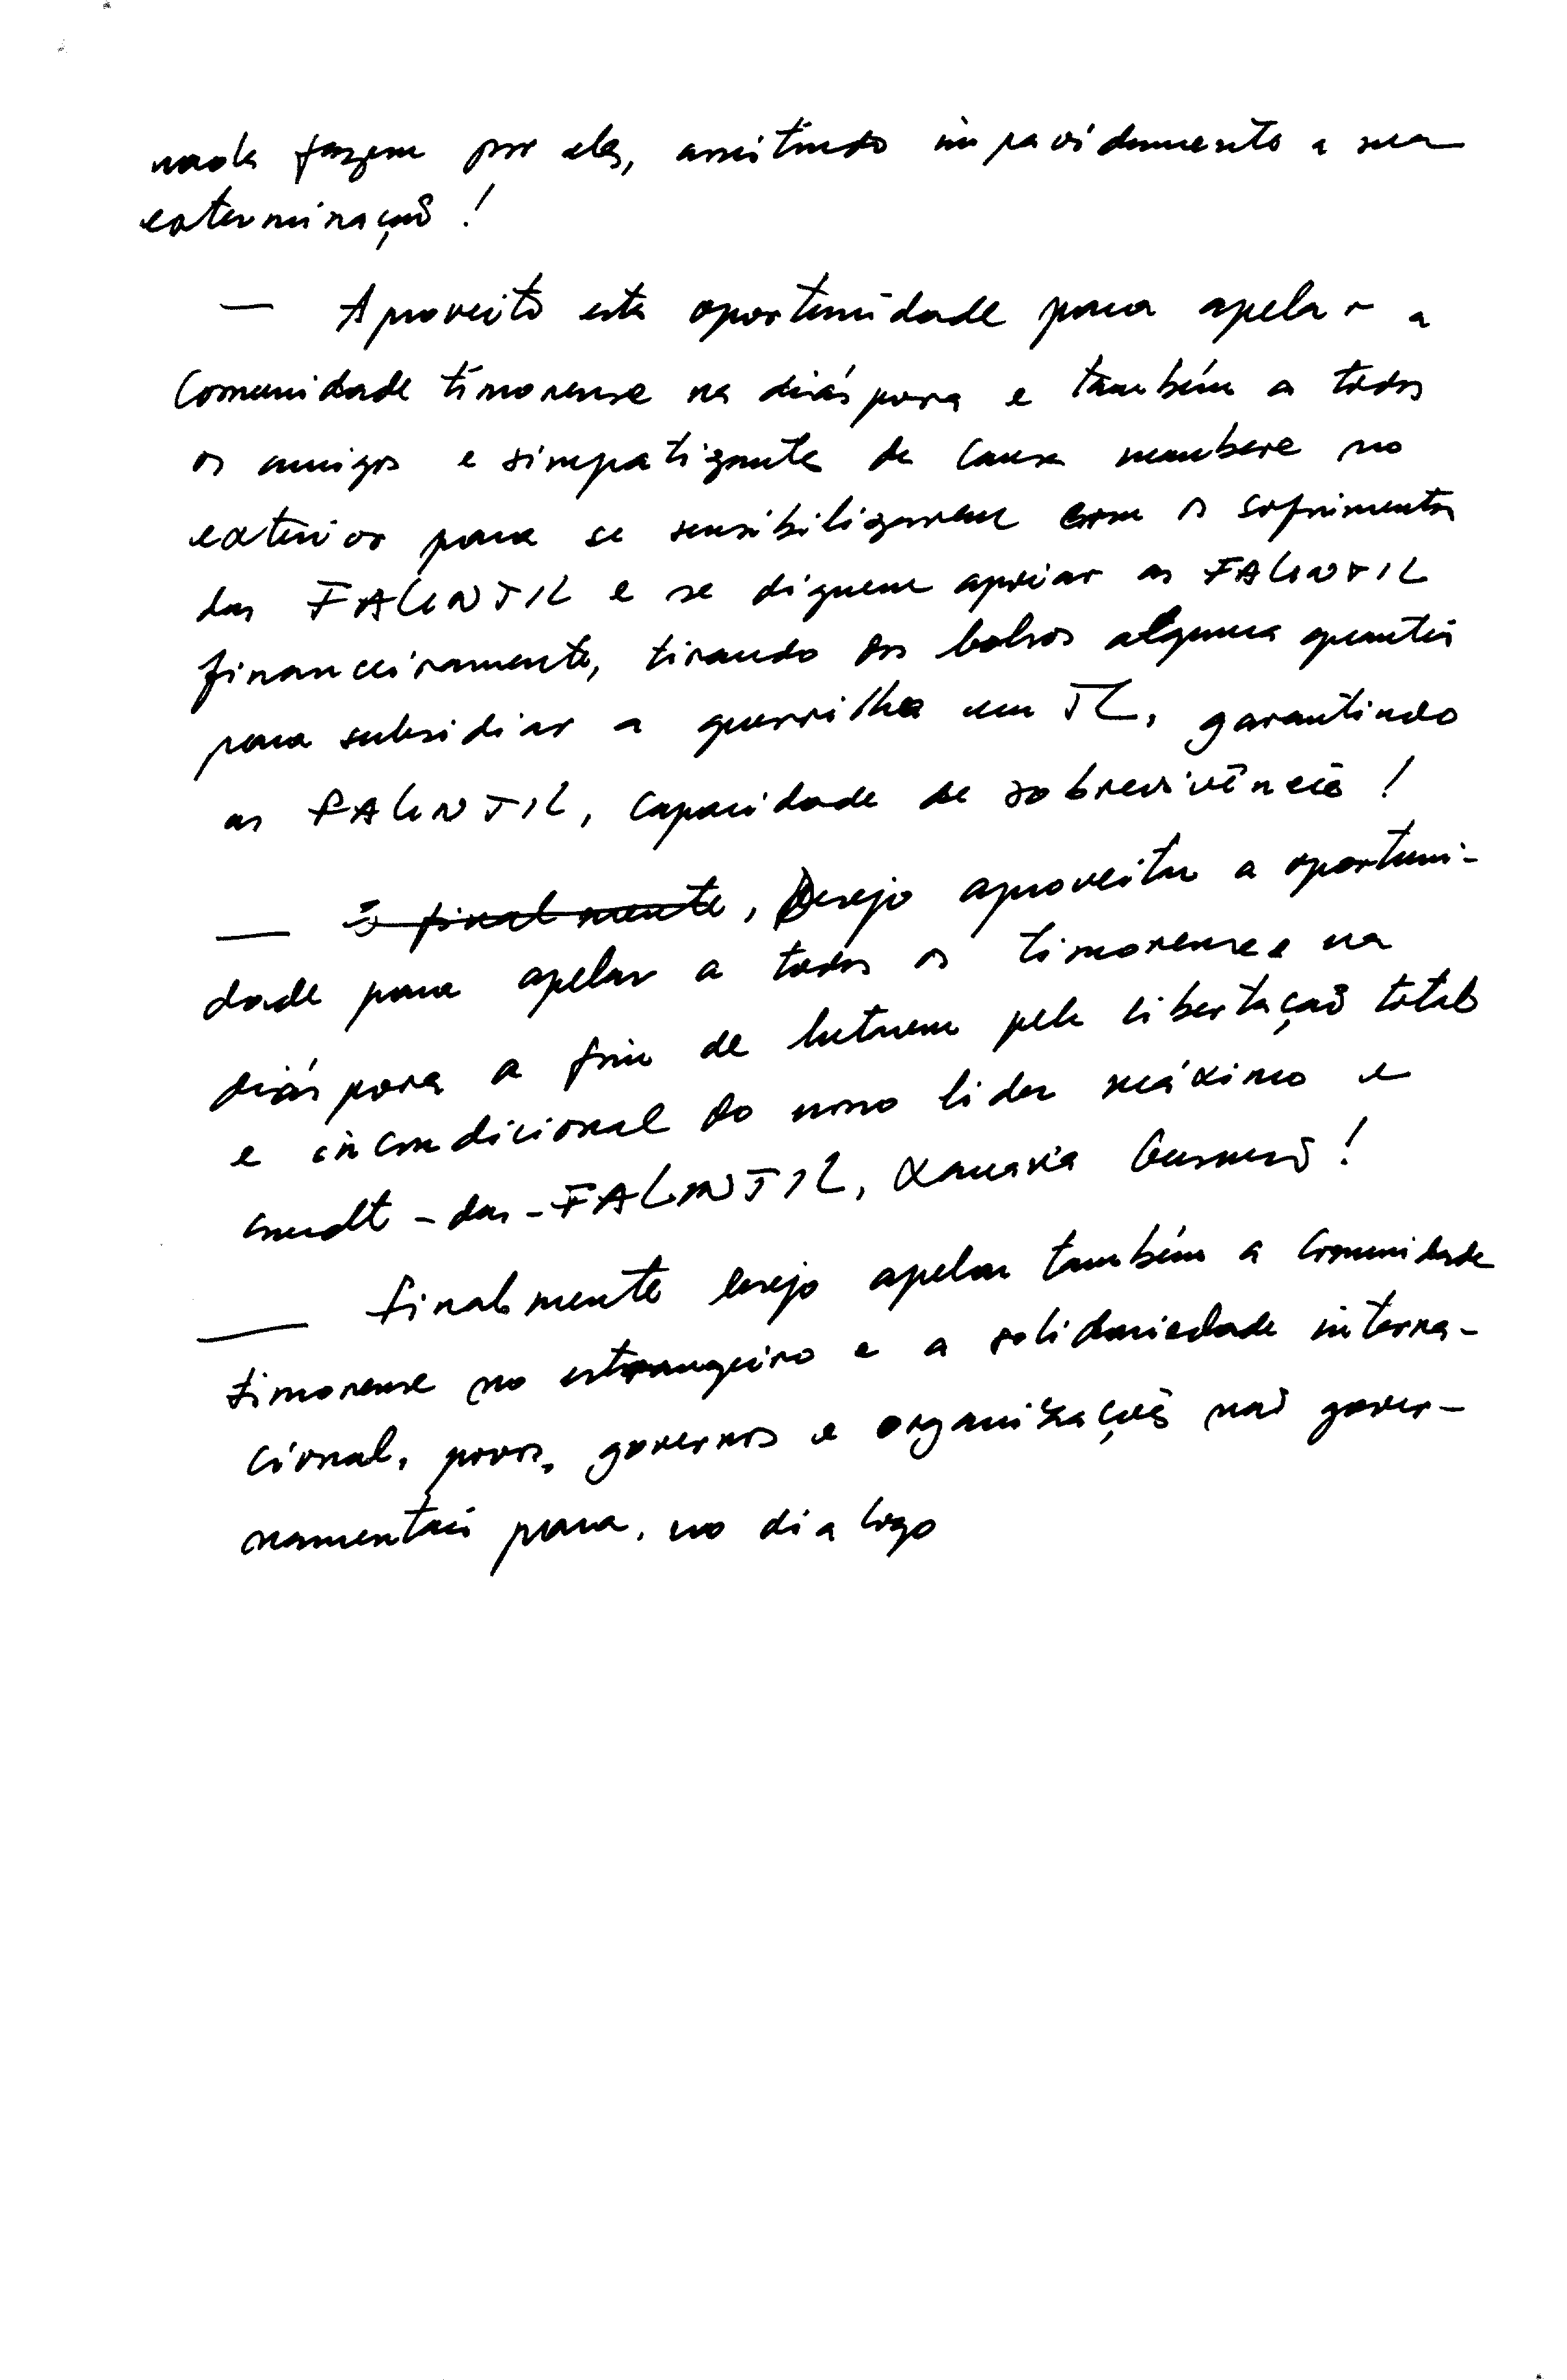 nada fazem por eles, assistindo impavidamente a sua
exterminação!
— Aproveito esta oportunidade para apelar a
Comunidade timorense na diáspora e também a todos
os amigos e simpatizantes da Causa maubere no
exterior para se sensibilizarem com o sofrimento
das FALINTIL e se dignem apoiar as FALINTIL
financeiramente, tirando dos bolsos alguma quantia
para subsidiar a guerrilha em TL, garantindo
as FALINTIL, capacidade de sobrevivência!
— E finalmente, Desejo aproveitar a oportuni-
dade para apelar a todos os timorenses na
diáspora a fim de lutarem pela libertação total
e incondicional do nosso lider máximo e
cmdt-das-FALINTIL, Xanana Gusmão!
— Finalmente desejo apelar também a Comunidade
timorense no estrangeiro e a solidariedade interna-
cional, povos, governos e organizações não gover-
namentais para, no dialogo